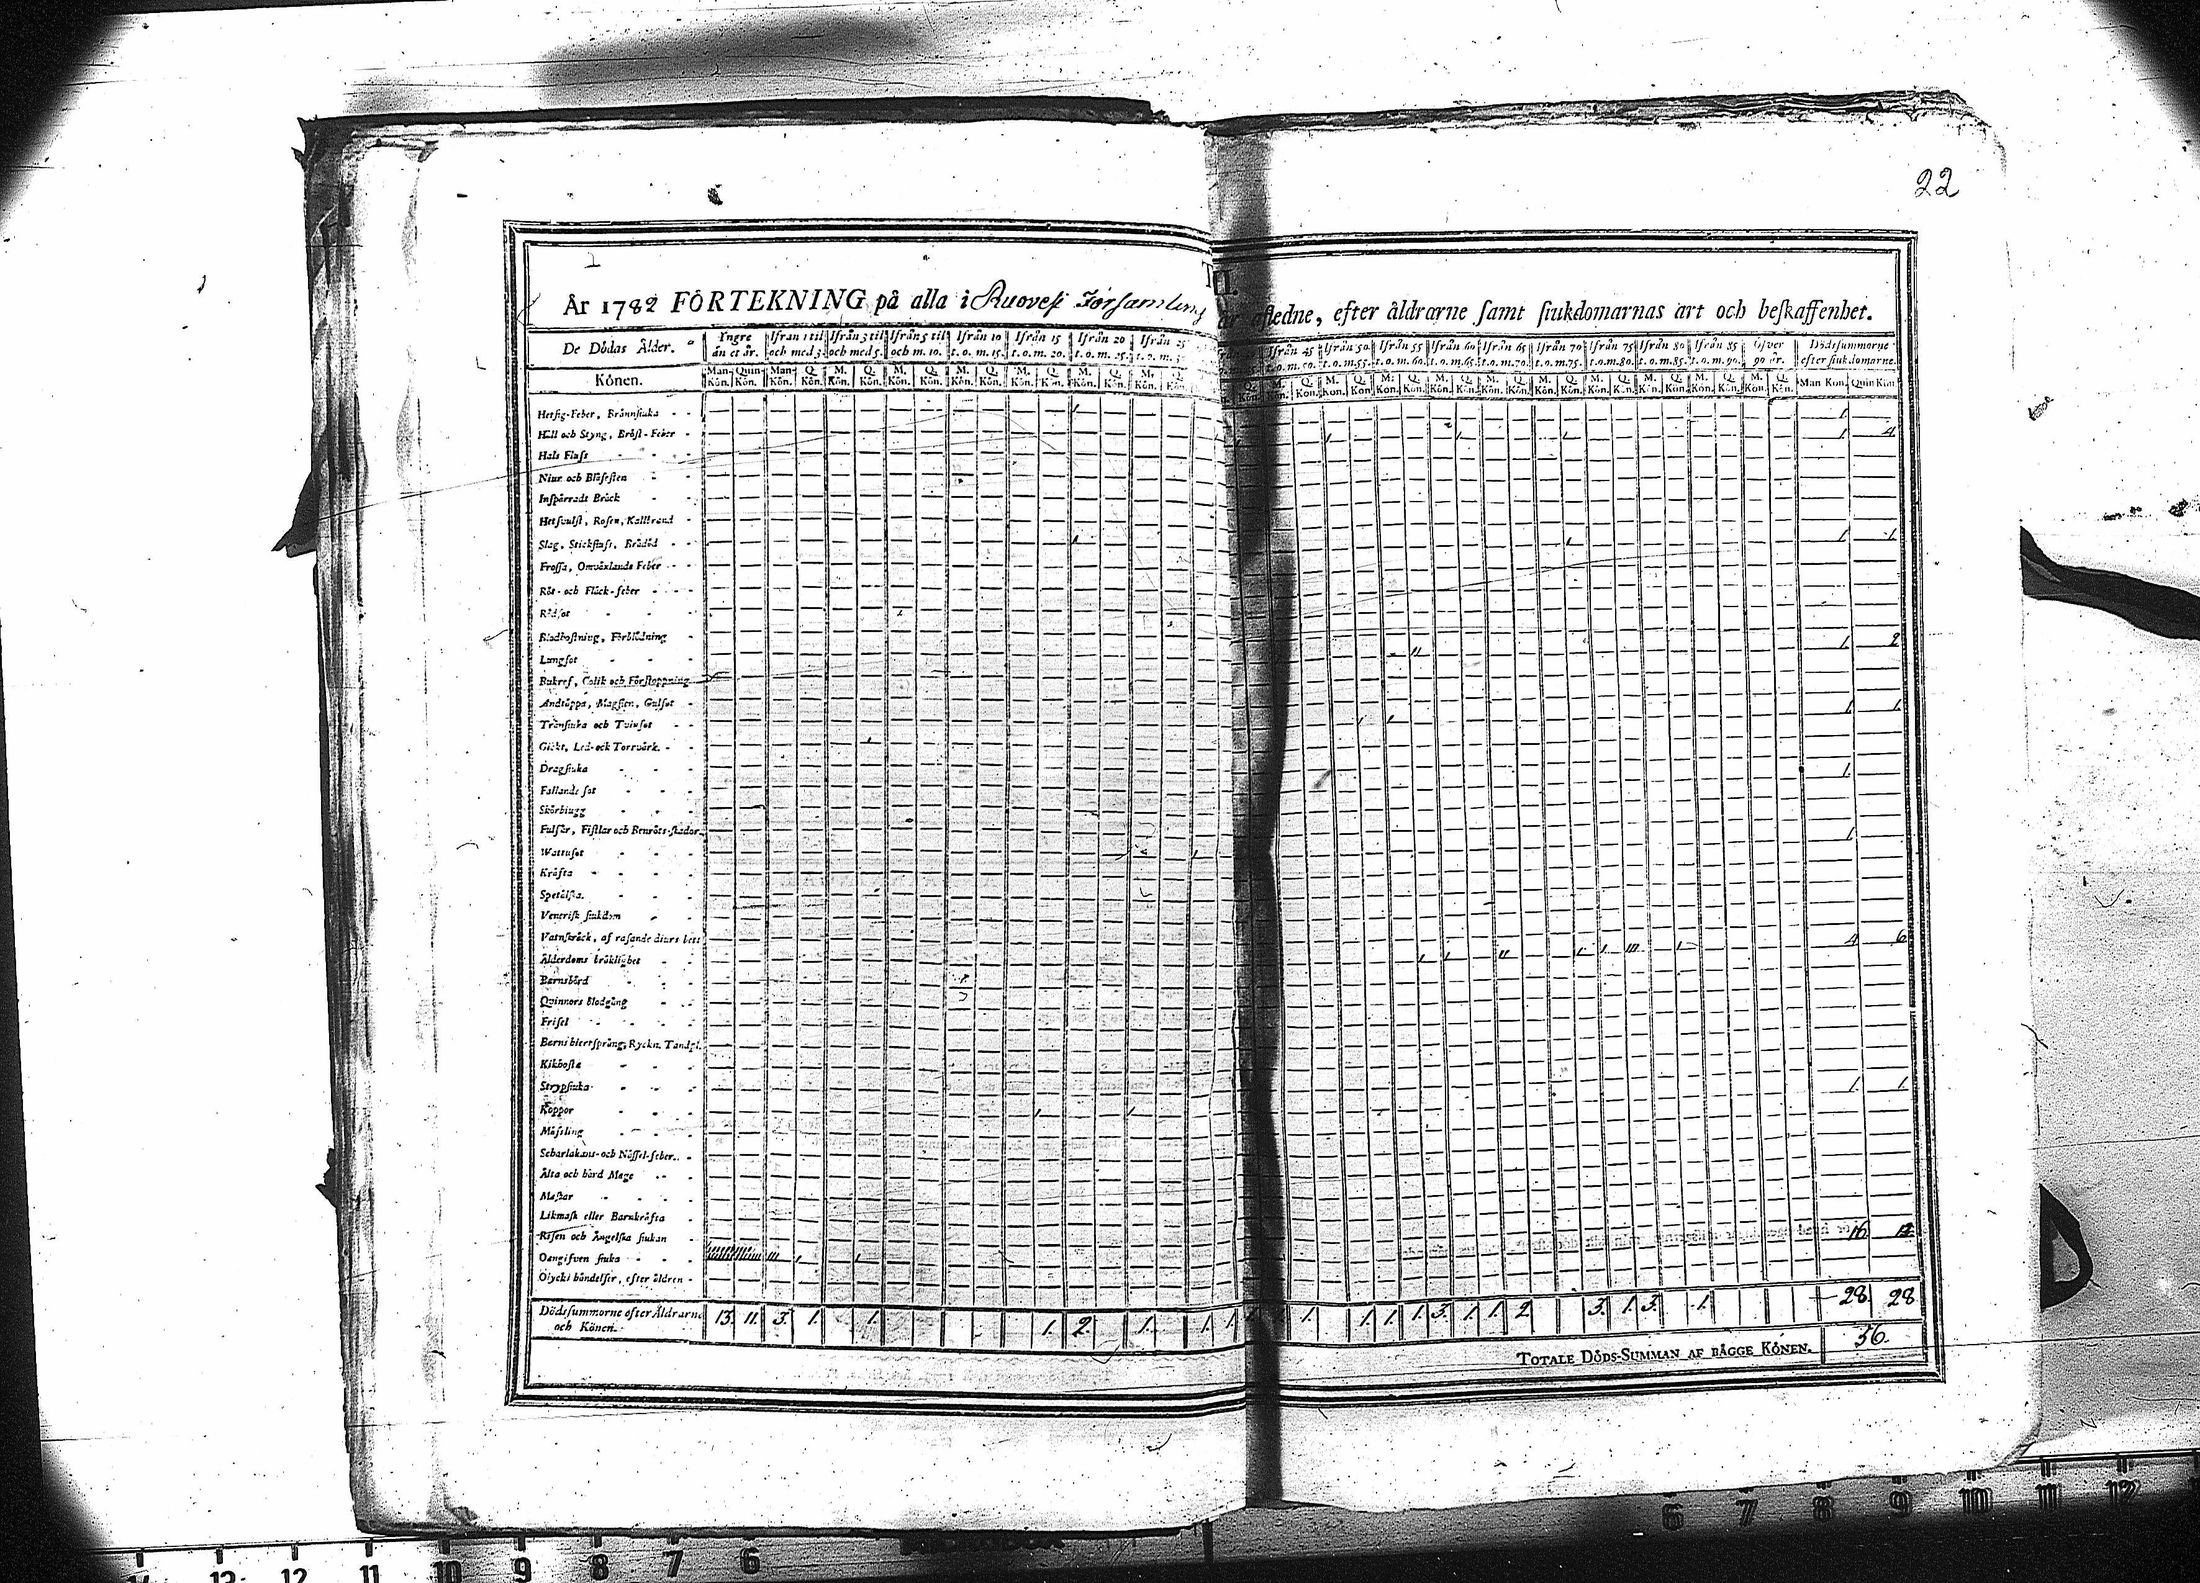 22
III.
År 1782 FÖRTEKNING på alla i Ruovesi Församling afledne, efter åldrarne samt siukdomarnas art och beskaffenhet.
De Dödas Ålder. Yngre än et år. Ifrån 1 til och med 3. Ifrån 3 til och med 5. Ifrån 5 til och m. 10. Ifrån 10 t.o.m. 15. Ifrån 15 t.o.m. 20. Ifrån 20 t.o.m. 25. Ifrån 25 Ifrån 45 t.o.m. 50. Ifrån 50 t.o.m. 55. Ifrån 55 t.o.m. 60. Ifrån 60 t.o.m. 65. Ifrån 65 t.o.m. 70. Ifrån 70 t.o.m. 75. Ifrån 75 t.o.m. 80. Ifrån 80 t.o.m. 85. Ifrån 85 t.o.m. 90. Öfver 90 år. Dödssummorne efter siukdomarne.
Könen. Man-Kön. Quin-Kön. Man-Kön. Q. Kön. M. Kön. Q. Kön. M. Kön. Q. Kön. M. Kön. Q. Kön. M. Kön. Q. Kön. M. Kön. Q. Kön. Man Kön. Quin Kön.
Hetsig-Feber, Brännsiuka 1.
Håll och Styng, Bröst-Feber 1. 4
Hals Fluss
Niur och Blåsesten
Inspärradt Bråck
Hetsvulst, Rosen, Kallbrand
Slag, Stickfluss, Brådöd 1. 1.
Frossa, Omväxlande Feber
Röt- och Fläck-feber
Rödsot
Blodhostning, Förblödning 1. 2
Lungsot
Bukref, Colik och Förstoppning
Andtäppa, Magsien, Gulsot 1. 1.
Trånsiuka och Tvinsot
Gickt, Led- och Torrvärk
Dragsiuka 1.
Fallande sot
Skörbiugg
Fulsår, Fistlar och Benröts-skador 1.
Wattusot
Kräfta
Spetälska
Venerisk siukdom
Vatnskräck, af rasande diurs bett 4 6
Ålderdoms bräklighet
Barnsbörd
Quinnors blodgång
Frisel
Barns hiertsprång, Ryckn. Tandsl.
Kikhosta
Strypsiuka 1. 1.
Koppor
Mässling
Scharlakans- och Nässel-feber
Älta och hård Mage
Maskar
Likmask eller Barnkräfta
Risen och Ängelska siukan 16 12
Oangifven siuka
Olyckl. händelser, efter åldren
Dödssummorne efter Åldrarne och Könen. 13. 11. 3. 1. 1. 1. 2. 1. 1. 1. 1. 1. 1. 1. 3. 1. 1. 2. 3. 1. 3. 1. 28. 28
TOTALE DÖDS-SUMMAN AF BÄGGE KÖNEN. 56.
13 12 11 10 9 8 7 6
6 7 8 9 10 11 12